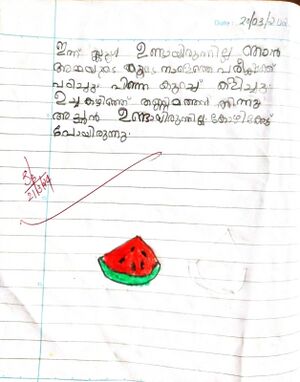 Date: 20/03/202
ഇന്ന് സ്കൂൾ ഉണ്ടായിരുന്നില്ല ഞാൻ
അമ്മയുടെ കൂടെ നാളത്തെ പരീക്ഷക്ക്
പഠിച്ചു. പിന്നെ കുറച്ച് കളിച്ചു.
ഉച്ച കഴിഞ്ഞ് തണ്ണിമത്തൻ തിന്നു
അച്ഛൻ ഉണ്ടായിരുന്നില്ല കോഴിക്കോട്
പോയിരുന്നു.
21/3/24